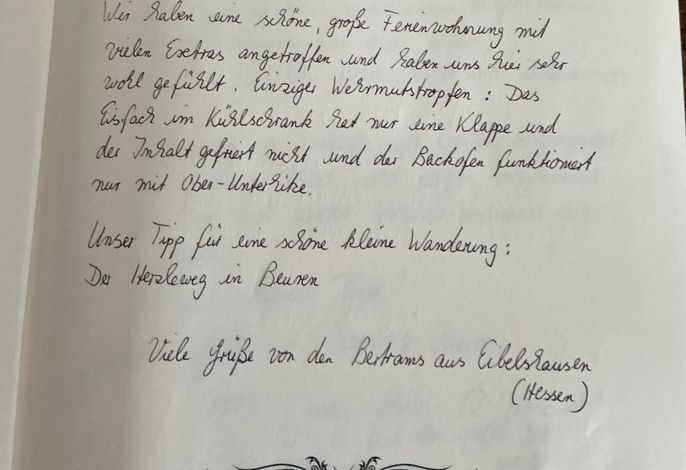 Wir haben eine schöne, große Ferienwohnung mit
vielen Extras angetroffen und haben uns hier sehr
wohl gefühlt. Einziger Wehrmutstropfen: Das
Eisfach im Kühlschrank hat nur eine Klappe und
der Inhalt gefriert nicht und der Backofen funktioniert
nur mit Ober-Unterhitze.
Unser Tipp für eine schöne kleine Wanderung:
Der Herzleweg in Beuren
Viele Grüße von den Bertrams aus Eibelshausen
(Hessen)